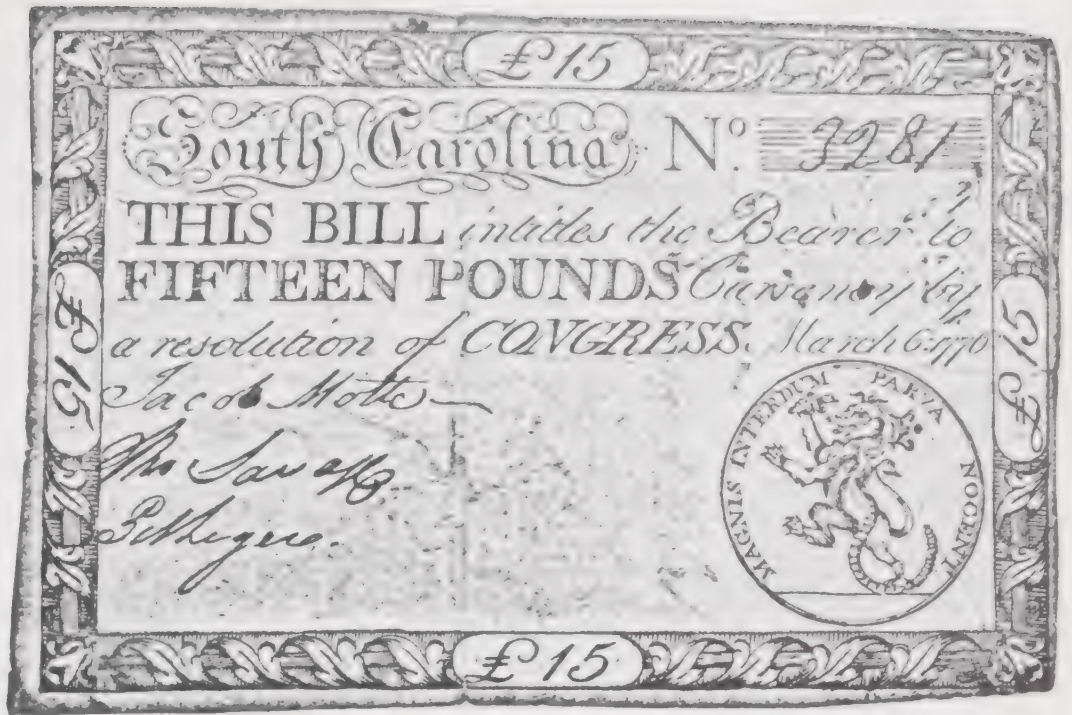 £15
South Carolina No. 3281
THIS BILL intitles the Bearer to
FIFTEEN POUNDS Currency by
a resolution of CONGRESS. March 6. 1776
£15
£15
Jacob Motte
MAGNIS INTERDUM PARVA NOCENT
Tho Savage
£15